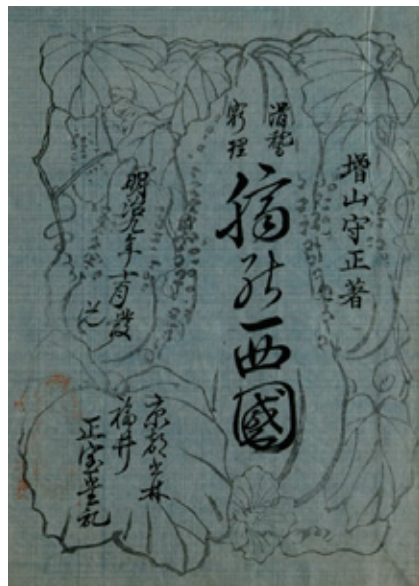 増山守正著
滑稽
窮理
臍能西國
明治九年十月發
兌
京都書林
福井
正宝堂